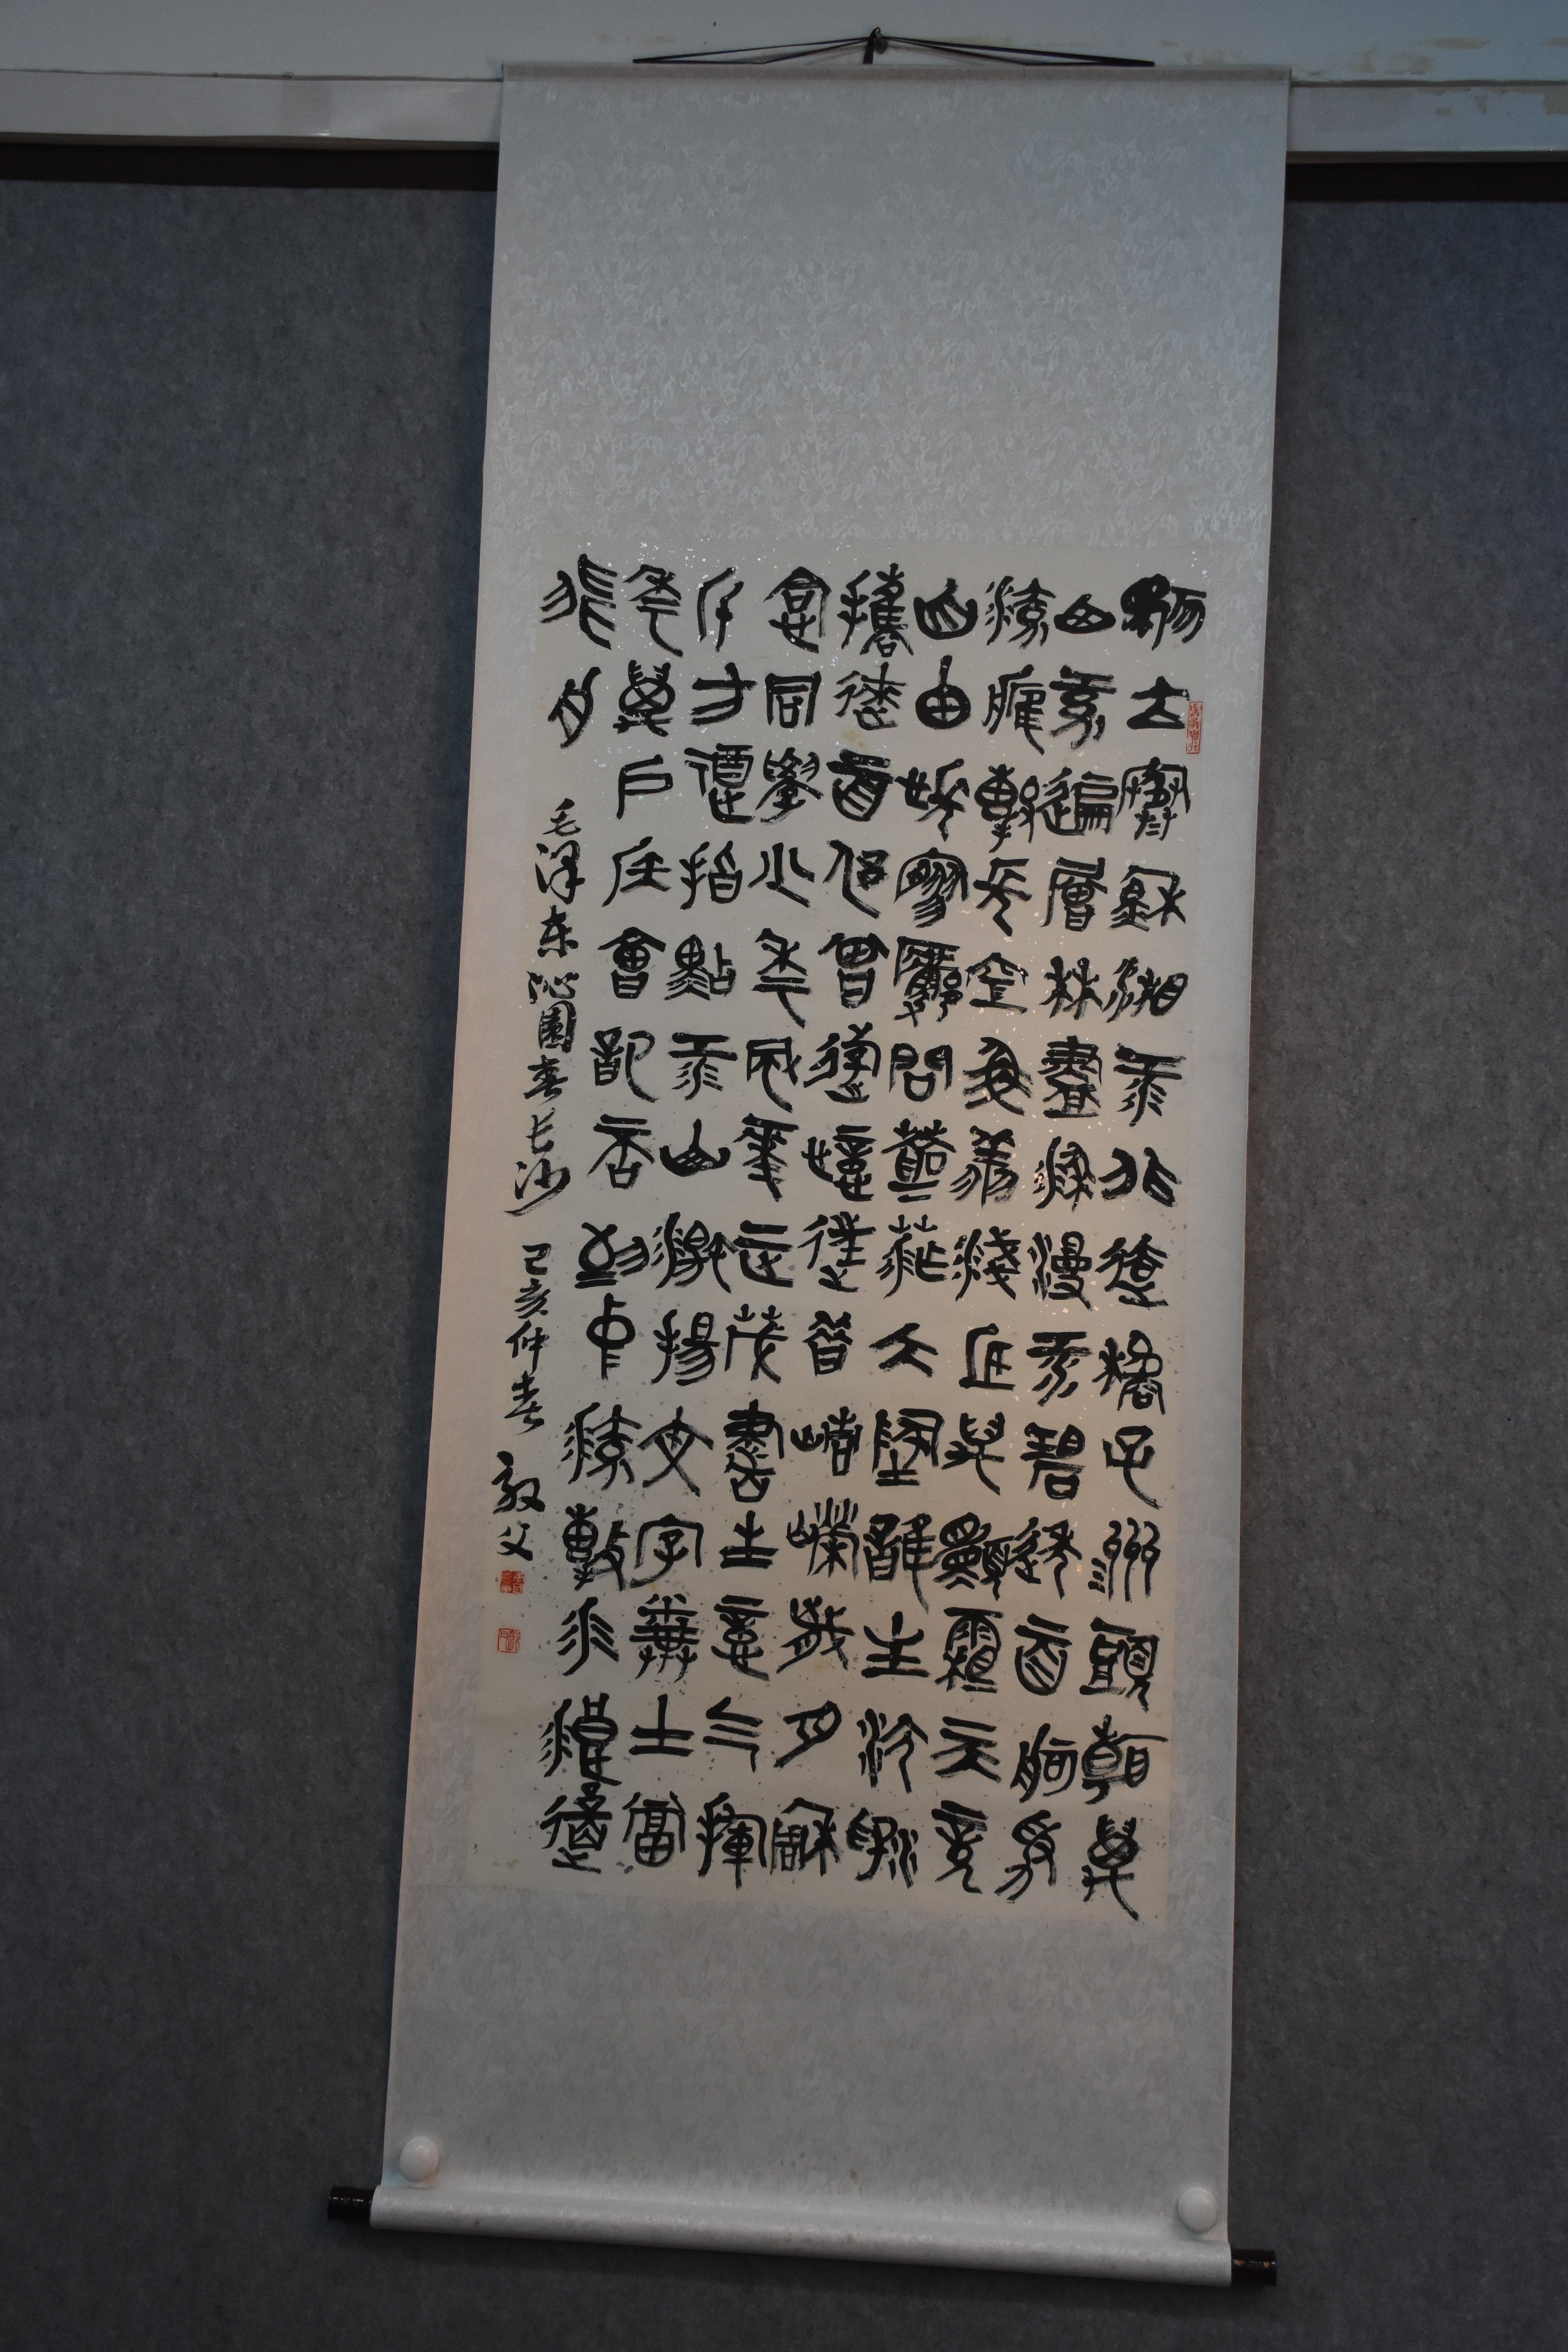 獨立寒秋湘江北去橘子洲頭看萬
山紅遍層林盡染漫江碧透百舸爭
流鷹擊長空魚翔淺底萬類霜天競
自由悵寥廓問蒼茫大地誰主沉浮
攜來百侶曾遊憶往昔崢嶸歲月稠
恰同學少年風華正茂書生意氣揮
斥方遒指點江山激揚文字糞土當
年萬戶侯曾記否到中流擊水浪遏
飛舟
毛泽东沁園春长沙 己亥仲春 敦父